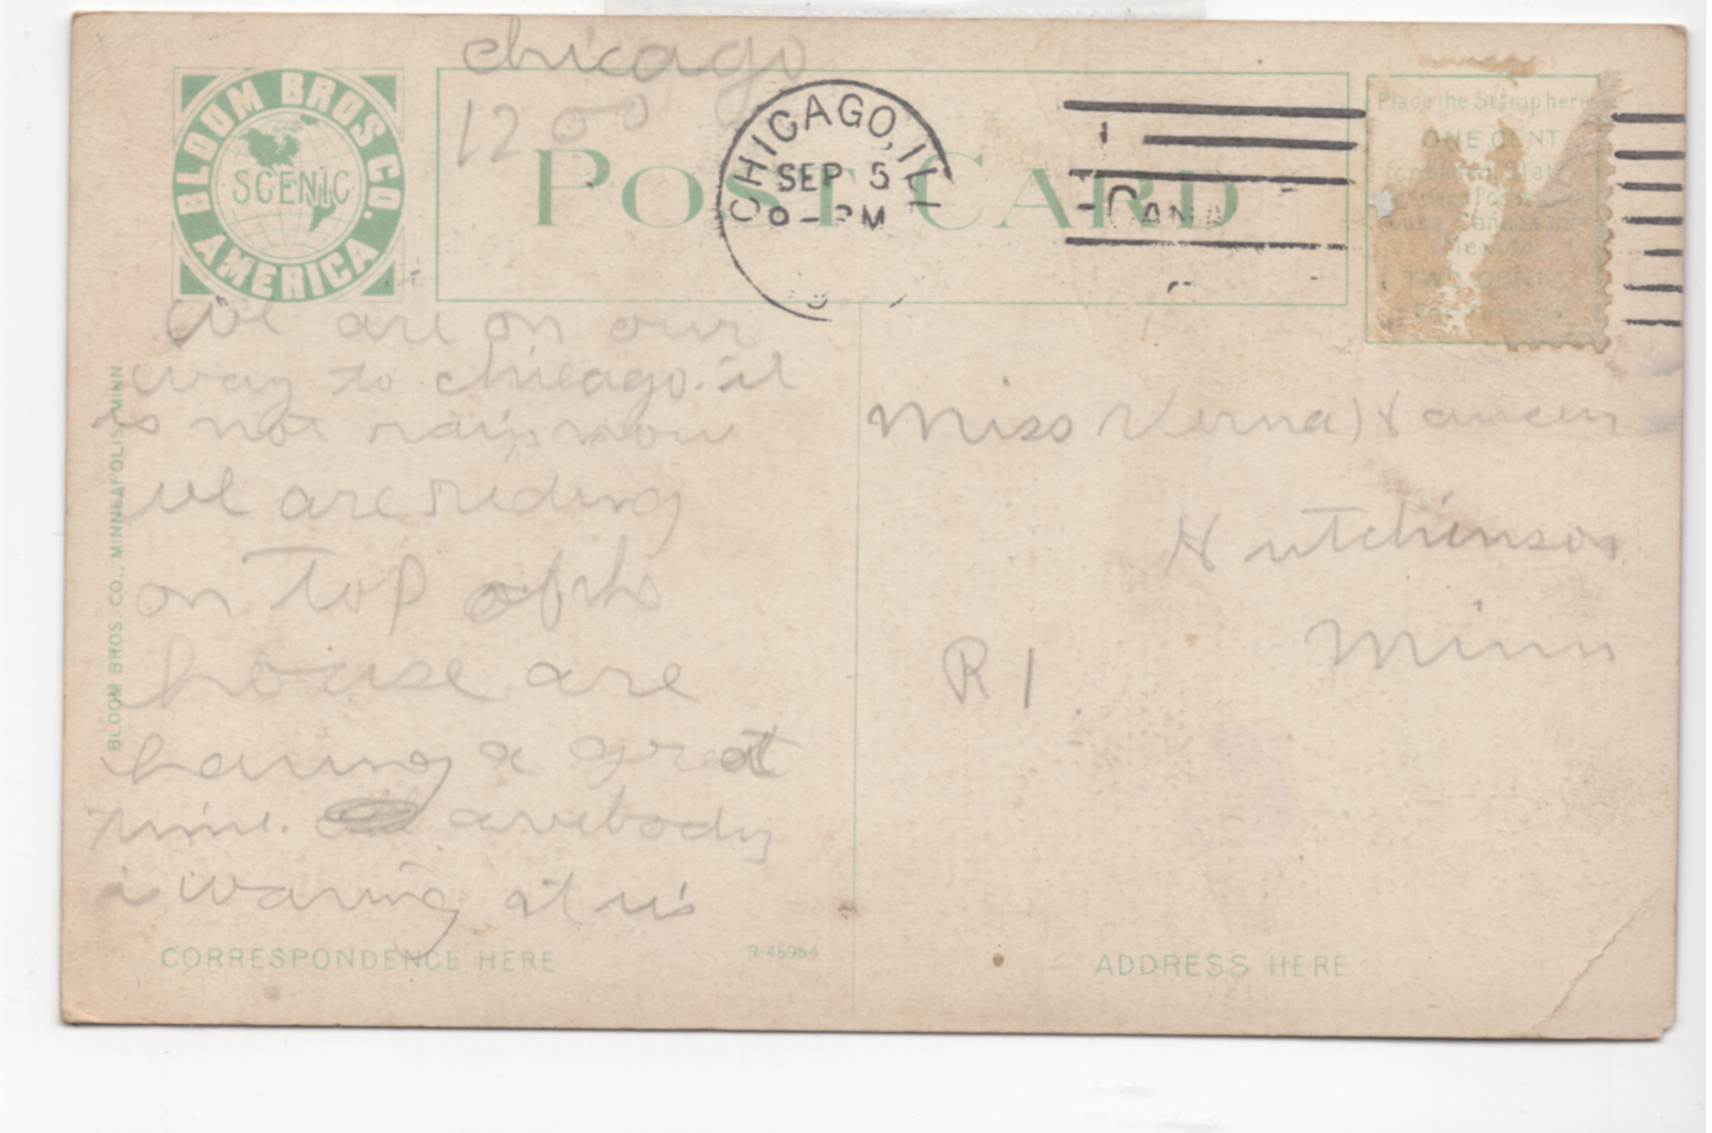 chicago
1200
BLOOM BROS. CO.
SCENIC
AMERICA
POST CARD
CHICAGO, ILL
SEP 5
8-PM
Place the Stamp here
ONE CENT
for United States
Mexico
TWO CENTS
We are on our
way to chicago. it
is not rain now
we are riding
on top of th
house are
having a great
time. avebody
is waving at us
Miss Verna Hansen
Hutchinson
Minn
R 1
BLOOM BROS. CO., MINNEAPOLIS, MINN
CORRESPONDENCE HERE
R-46964
ADDRESS HERE